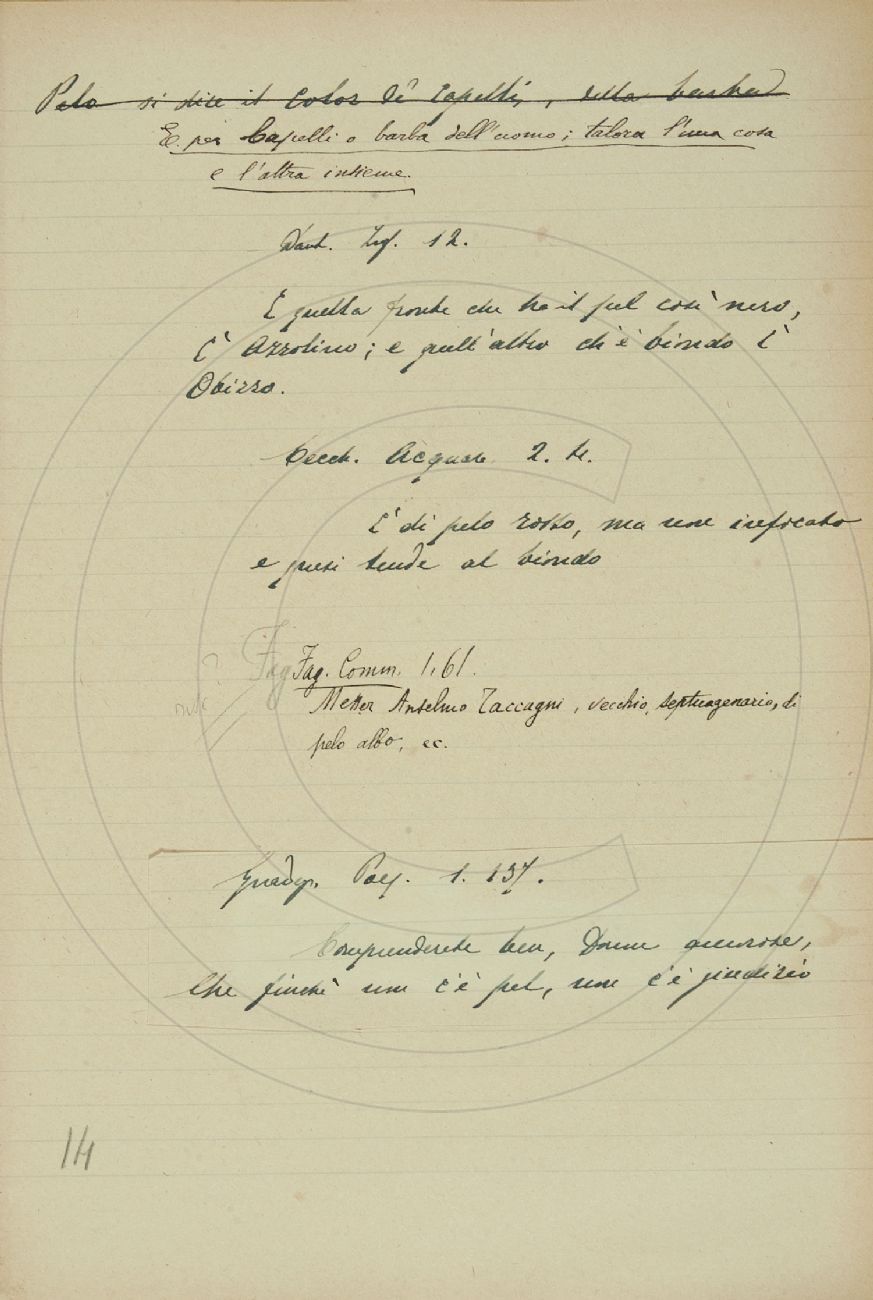 Pelo si dice il color de' capelli, della barba
E. per Capelli o barba dell'uomo; talora l'una cosa
e l'altra insieme.
Dant. Inf. 12.
E quella fronte che ha il pel così nero,
È Azzolino; e quell'altro ch'è biondo È
Obizzo.
Cecch. Acquaz. 2. 4.
È di pelo rosso, ma non infocato
e quasi tende al biondo
Fag
Fag. Comm. 1. 61.
Messer Anselmo Taccagni, vecchio septuagenario, di
pelo albo, ec.
Guadagn. Poes. 1. 137.
Comprenderete ben, Donne amorose,
Che finchè non c'è pel, non c'è giudizio
14